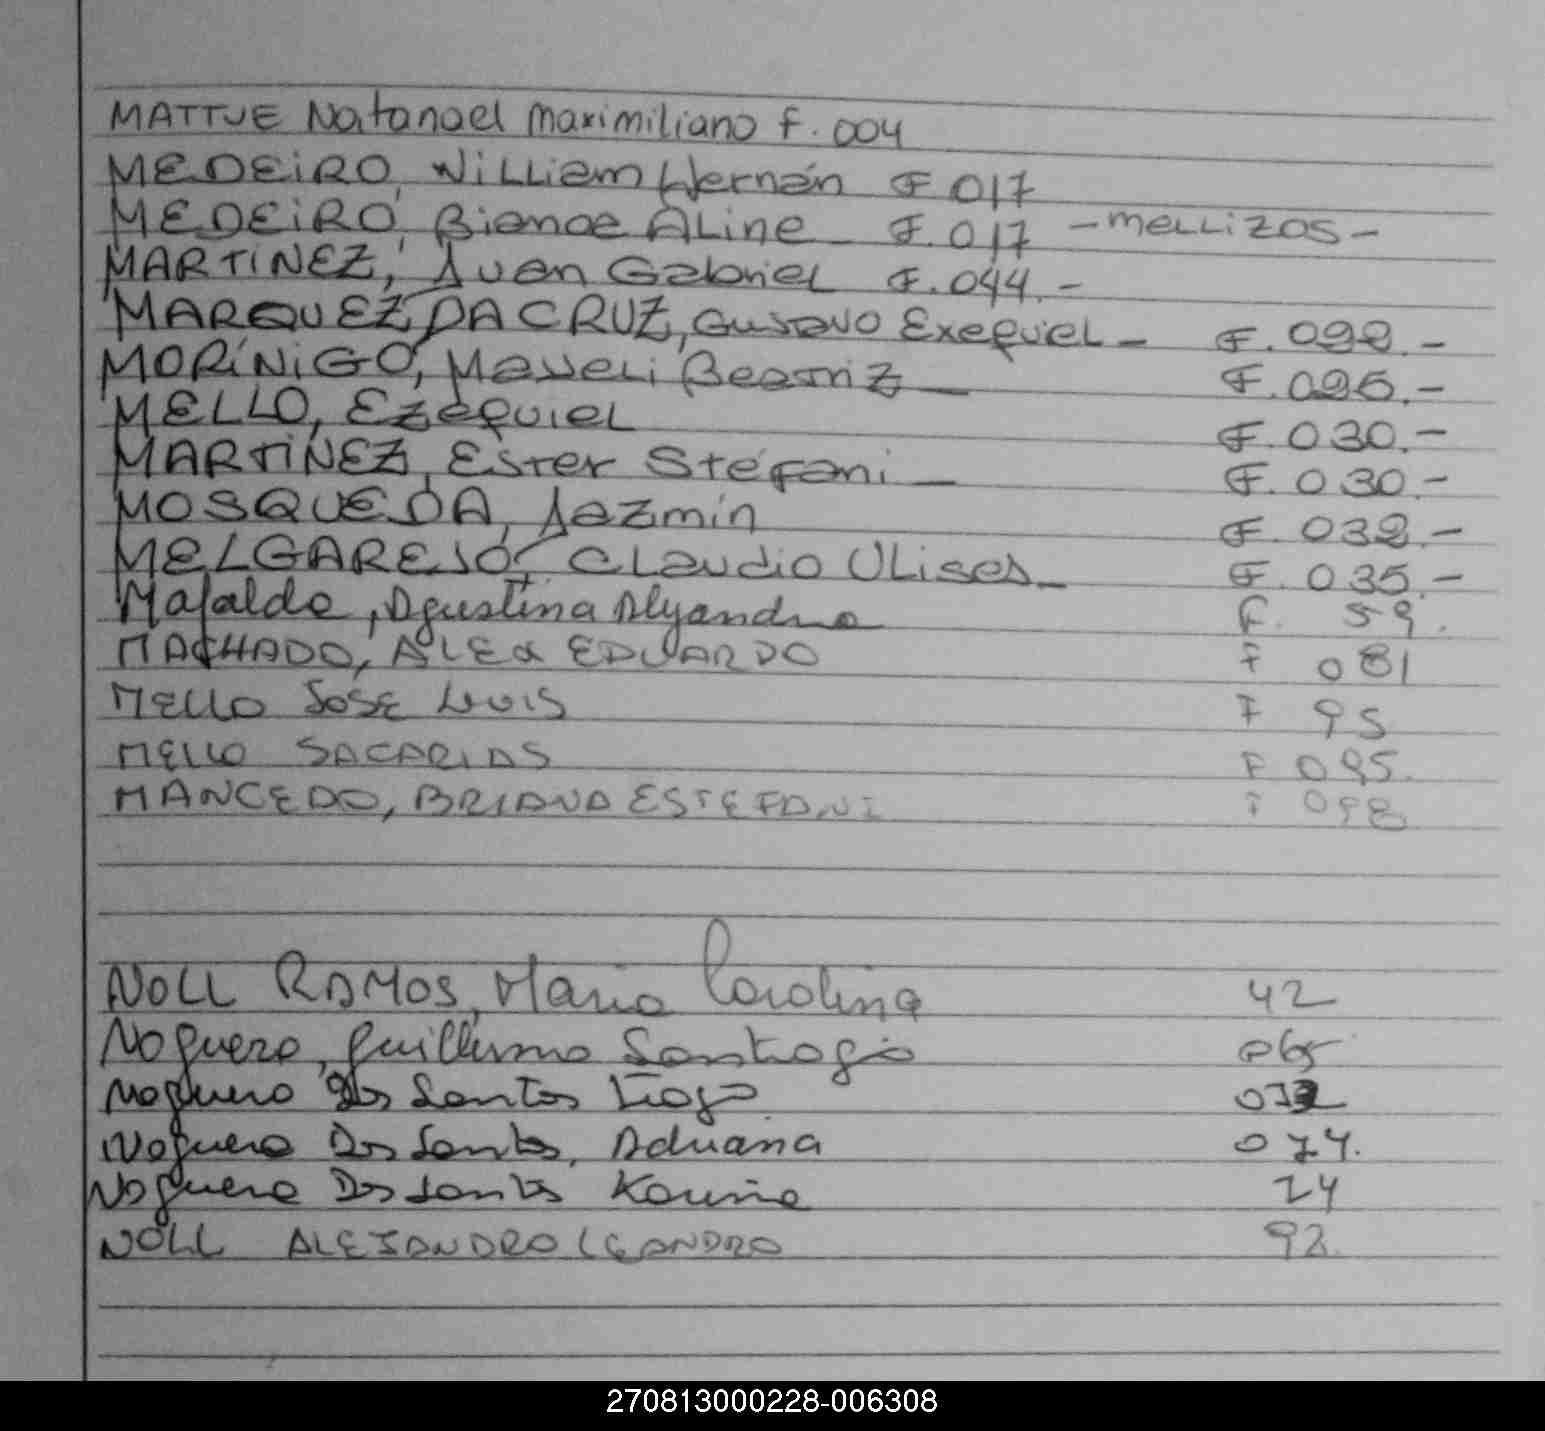 MATTJE Natanael Maximiliano F. 004
MEDEiRO, WiLLiam Hernán F 017
MEDEiRO, Bianca ALine F. 017 - meLLiZOS -
MARTíNEZ, Juan Gabriel F. 044. -
MARQUEZ DA CRUZ, Gustavo Exequiel - F. 092. -
MORíNiGO, MayeLi Beatriz F. 025. -
MELLO, EzequieL F. 030. -
MARTíNEZ, Ester Stefani - F. 030. -
MOSQUEDA, Jazmín F. 032. -
MELGAREJO CLaudio ULises - F. 035. -
Mafalda, Agustina Alejandra F. 59.
MACHADO, ALEX EDUARDO F 081
MELLO JOSE LUIS F 95
MELLO SACARIAS F 095.
MANCEDO, BRIANA ESTEFANI F 098
NOLL RAMOS, Maria Carolina 42
Noguera, Guillermo Santiago 065
Noguera Dos Santos Tiago
Noguera Dos Santos, Adriana 074.
Noguera Dos Santos Karina 74
NOLL ALEJANDRO LEANDRO 92.
270813000228-006308